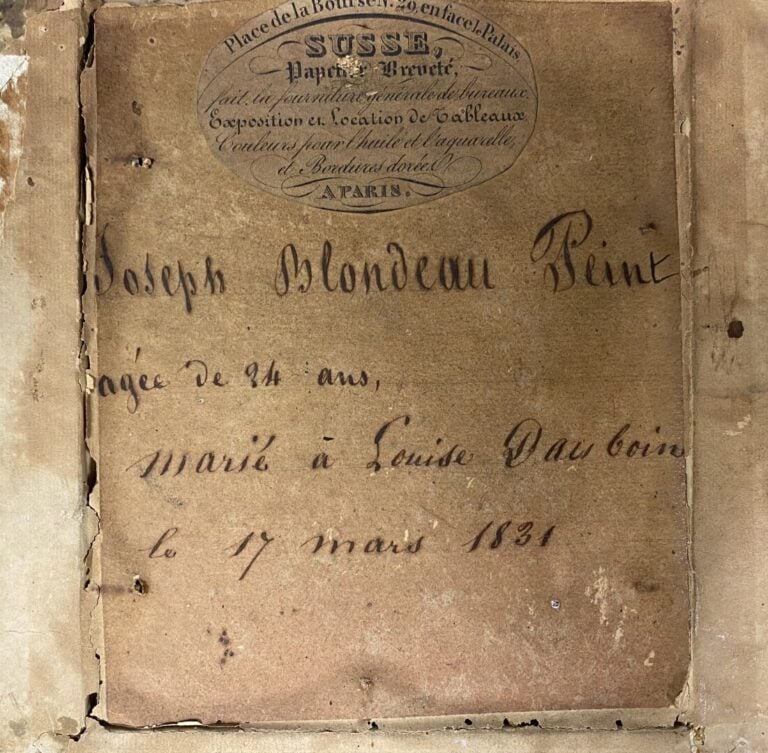 Place de la Bourse N. 29, en face le Palais
SUSSE,
Papetier Breveté,
fait la fourniture générale de bureaux.
Exposition et Location de Tableaux
Couleurs pour l'huile et l'aquarelle,
et Bordures dorées.
A PARIS.
Joseph Blondeau Peint
agée de 24 ans,
marié à Louise
le 17 mars 1831